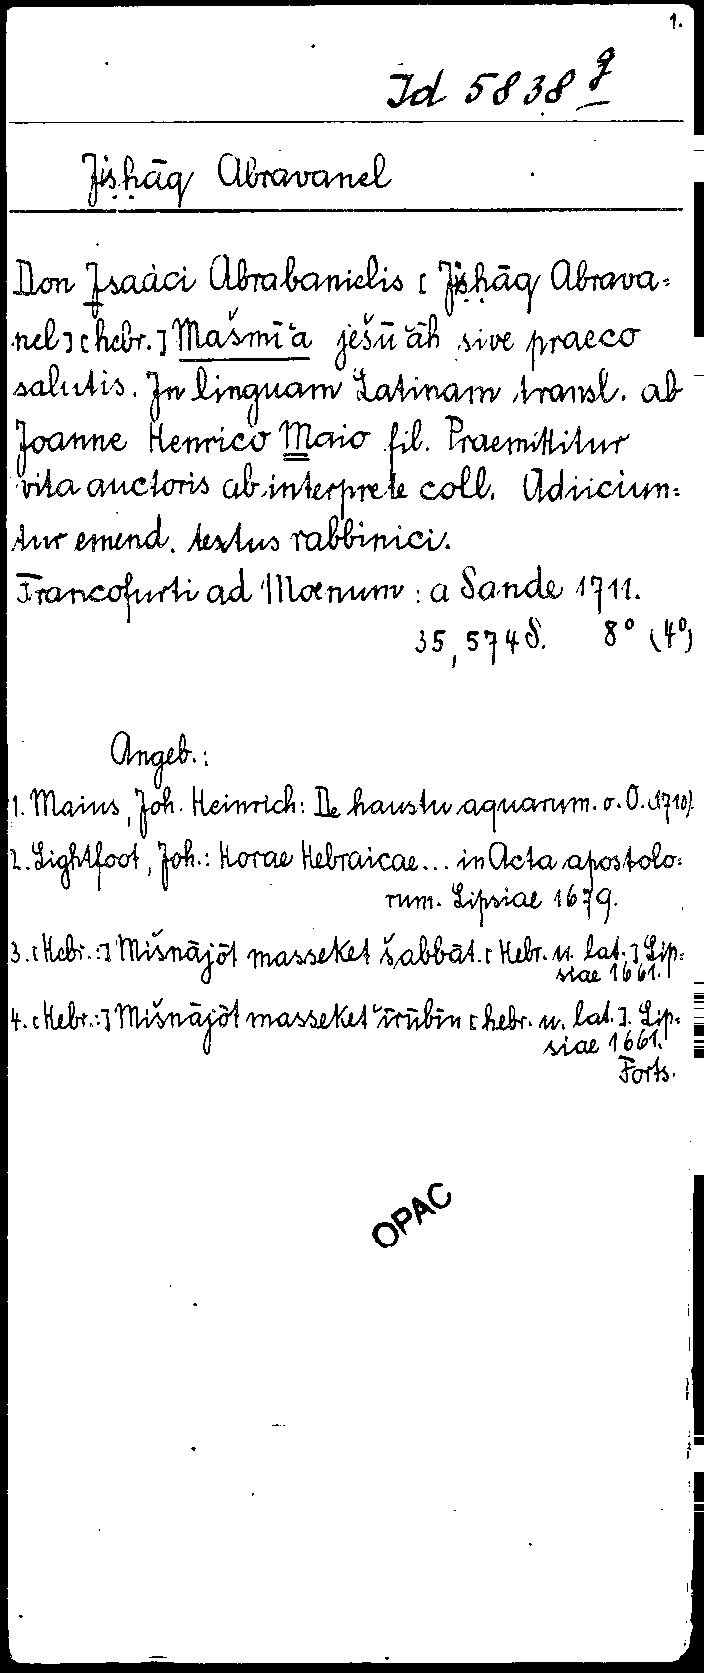 1.
Id 5838 g
Jiṣḥāq Abravanel
Don Isaàci Abrabanielis [Jiṣḥāq Abrava=
nel] [hebr.] Mašmīʿa ješūʿāh sive praeco
salutis. In linguam Latinam transl. ab
Joanne Henrico Maio fil. Praemittitur
vita auctoris ab interprete coll. Adiiciun=
tur emend. textus rabbinici.
Francofurti ad Moenum: a Sande 1711.
35, 574 S. 8° (4°)
Angeb.:
1. Maius, Joh. Heinrich: De haustu aquarum. o.O. (1710).
2. Lightfoot, Joh.: Horae Hebraicae... in Acta apostolo=
rum. Lipsiae 1679.
3. [Hebr.:] Mišnājōt masseket šabbāt. [Hebr. u. lat.] Lip=
siae 1661.
4. [Hebr.:] Mišnājōt masseket ʿīrūbīn [hebr. u. lat.]. Lip=
siae 1661.
Forts.
OPAC